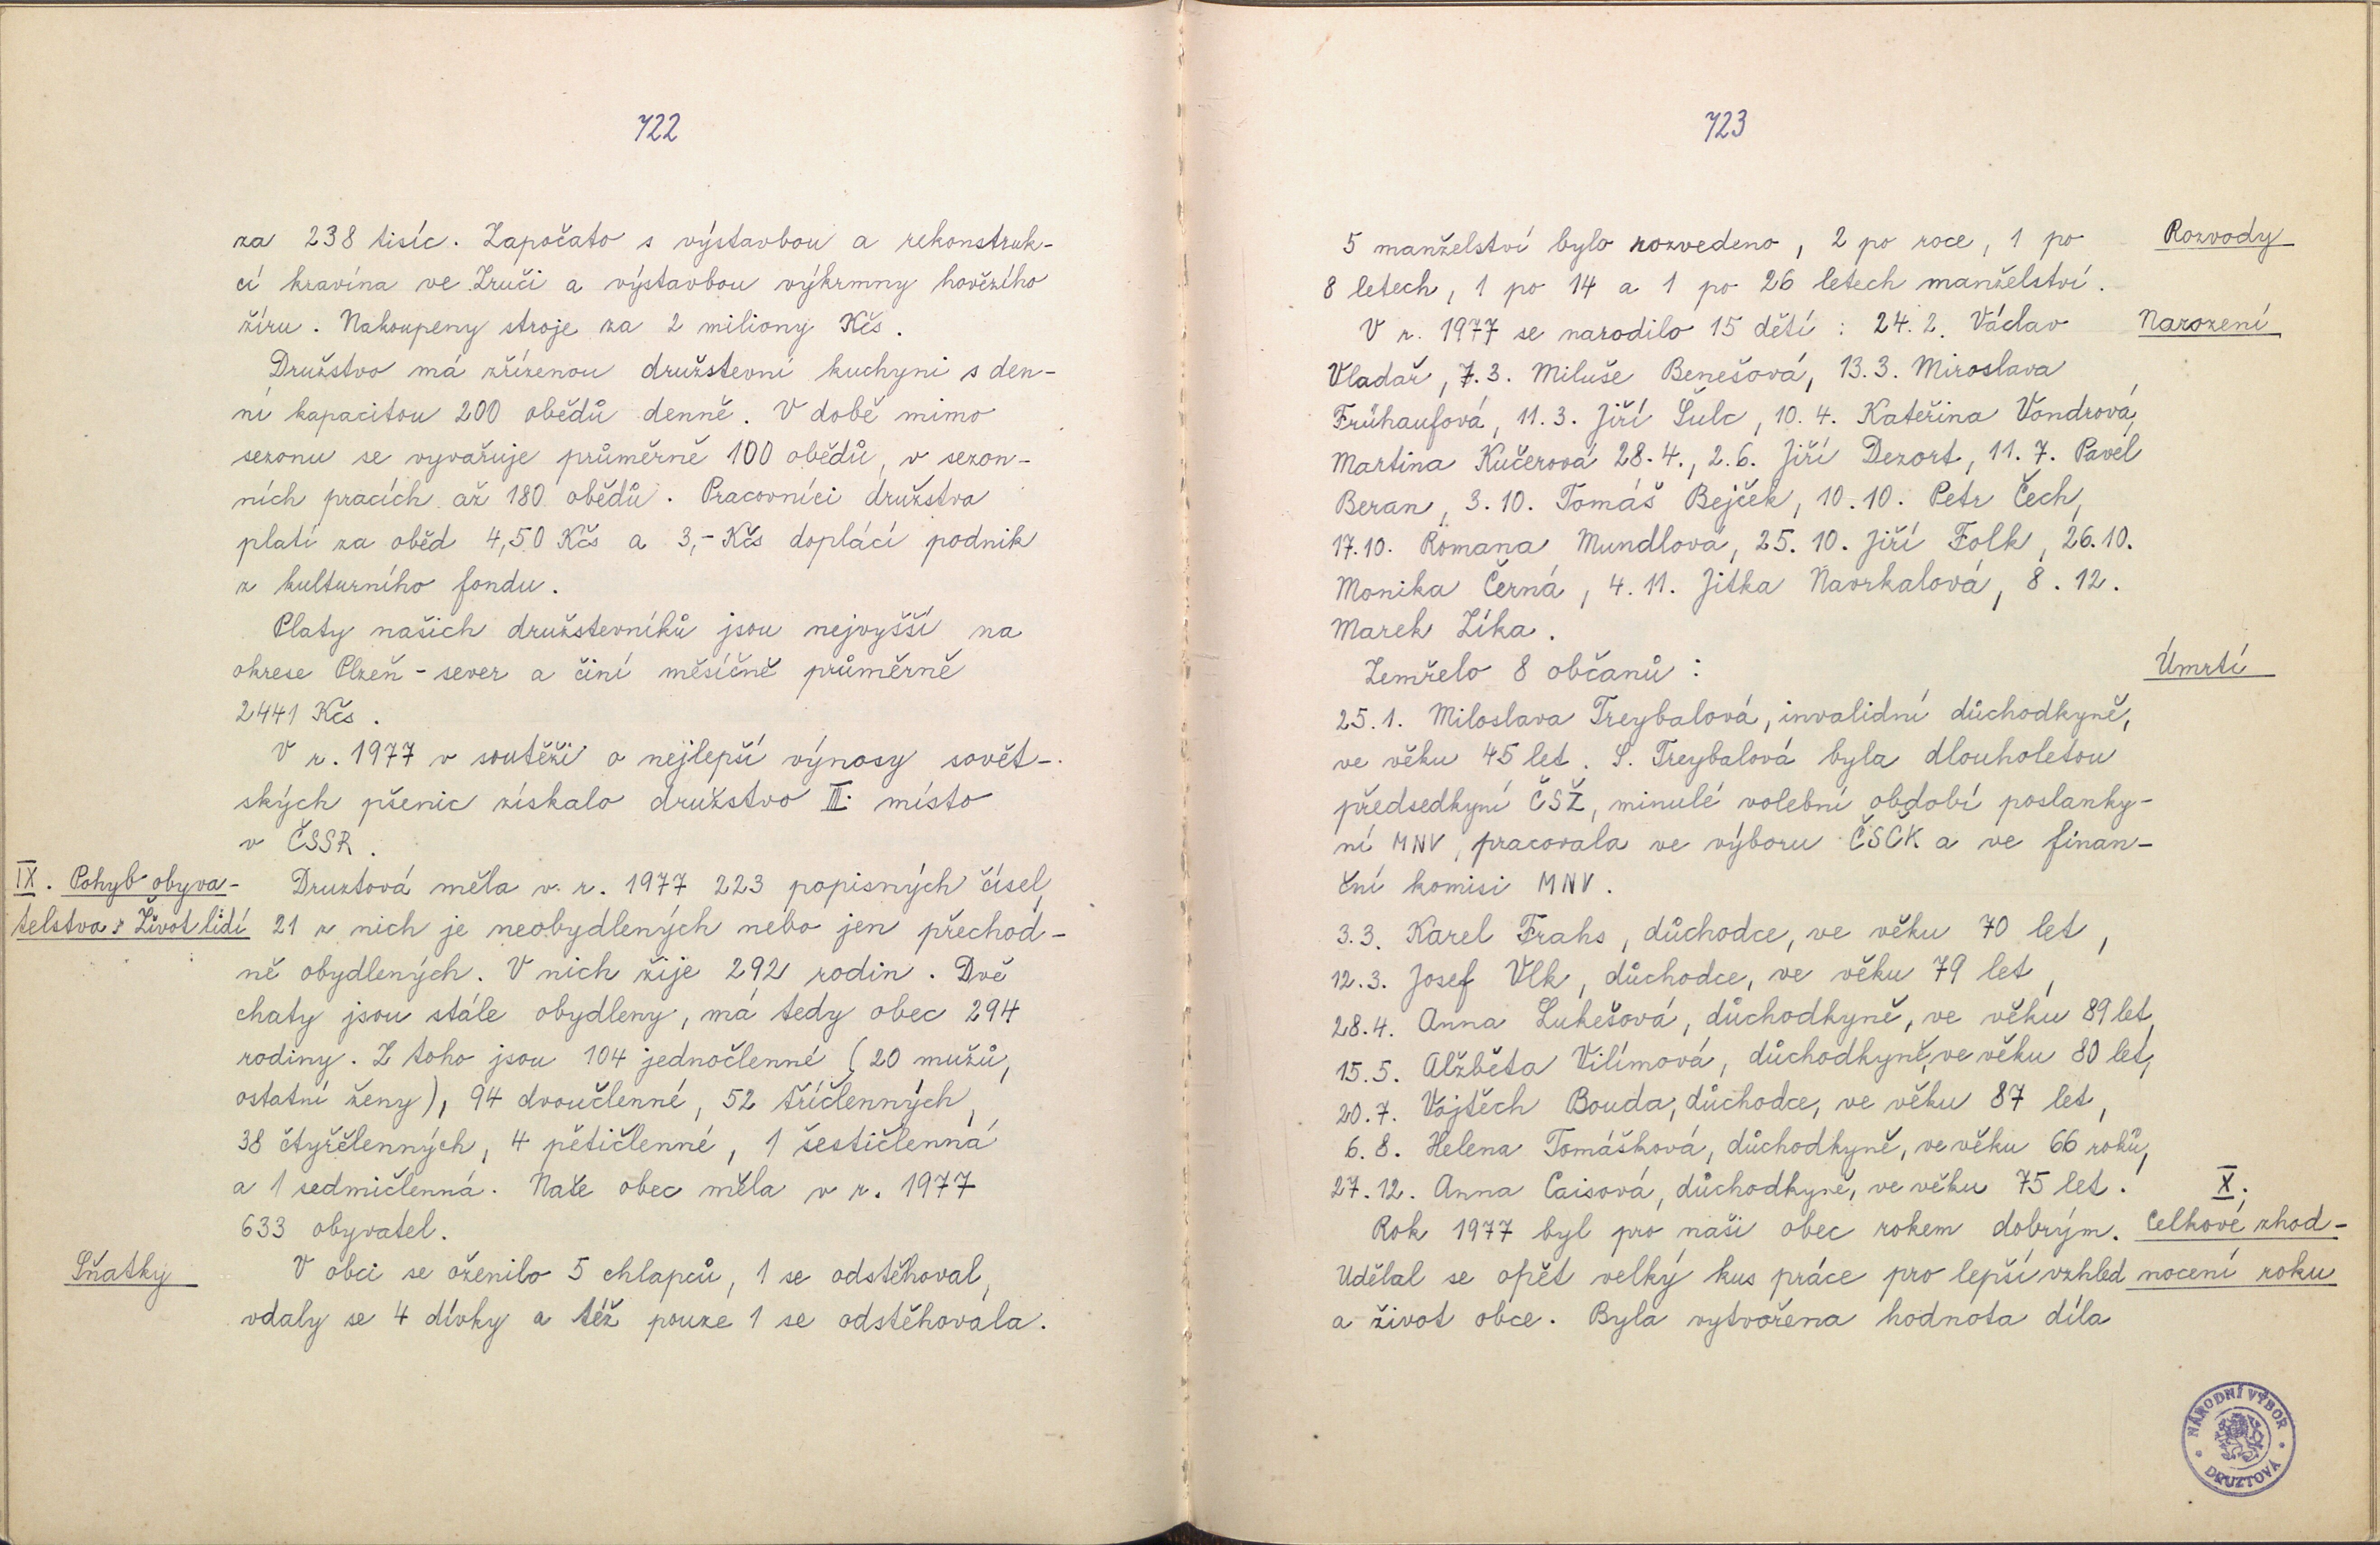 722
za 238 tisíc. Započato s výstavbou a rekonstruk-
cí kravína ve Zruči a výstavbou výkrmny hovězího
žíru. Nakoupeny stroje za 2 miliony Kčs.
Družstvo má zřízenou družstevní kuchyni s den-
ní kapacitou 200 obědů denně. V době mimo
sezonu se vyvařuje průměrně 100 obědů, v sezon-
ních pracích až 180 obědů. Pracovníci družstva
platí za oběd 4,50 Kčs a 3,- Kčs doplácí podnik
z kulturního fondu.
Platy našich družstevníků jsou nejvyšší na
okrese Plzeň - sever a činí měsíčně průměrně
2441 Kčs.
V r. 1977 v soutěži o nejlepší výnosy sovět-
ských pšenic získalo družstvo III. místo
v ČSSR.
IX. Pohyb obyva-
telstva; Život lidí
Druztová měla v r. 1977 223 popisných čísel,
21 z nich je neobydlených nebo jen přechod-
ně obydlených. V nich žije 292 rodin. Dvě
chaty jsou stále obydleny, má tedy obec 294
rodiny. Z toho jsou 104 jednočlenné (20 mužů,
ostatní ženy), 94 dvoučlenné, 52 tříčlenných,
38 čtyřčlenných, 4 pětičlenné, 1 šestičlenná
a 1 sedmičlenná. Naše obec měla v r. 1977
633 obyvatel.
Sňatky
V obci se oženilo 5 chlapců, 1 se odstěhoval,
vdaly se 4 dívky a též pouze 1 se odstěhovala.
723
5 manželství bylo rozvedeno, 2 po roce, 1 po
Rozvody
8 letech, 1 po 14 a 1 po 26 letech manželství.
V r. 1977 se narodilo 15 dětí: 24.2. Václav
Narození
Vladař, 7.3. Miluše Benešová, 13.3. Miroslava
Frühaufová, 11.3. Jiří Šulc, 10.4. Kateřina Vondrová,
Martina Kučerová 28.4., 2.6. Jiří Dezort, 11.7. Pavel
Beran, 3.10. Tomáš Bejček, 10.10. Petr Čech,
17.10. Romana Mundlová, 25.10. Jiří Folk, 26.10.
Monika Černá, 4.11. Jitka Navrkalová, 8.12.
Marek Zíka.
Zemřelo 8 občanů:
Úmrtí
25.1. Miloslava Treybalová, invalidní důchodkyně,
ve věku 45 let. S. Treybalová byla dlouholetou
předsedkyní ČSŽ, minulé volební období poslanky-
ní MNV, pracovala ve výboru ČSČK a ve finan-
ční komisi MNV.
3.3. Karel Frahs, důchodce, ve věku 70 let,
12.3. Josef Vlk, důchodce, ve věku 79 let,
28.4. Anna Lukešová, důchodkyně, ve věku 89 let,
15.5. Alžběta Vilímová, důchodkyně, ve věku 80 let,
20.7. Vojtěch Bouda, důchodce, ve věku 87 let,
6.8. Helena Tomášková, důchodkyně, ve věku 66 roků,
27.12. Anna Caisová, důchodkyně, ve věku 75 let.
X.
Celkové zhod-
nocení roku
Rok 1977 byl pro naši obec rokem dobrým.
Udělal se opět velký kus práce pro lepší vzhled
a život obce. Byla vytvořena hodnota díla
NÁRODNÍ VÝBOR
DRUZTOVÁ